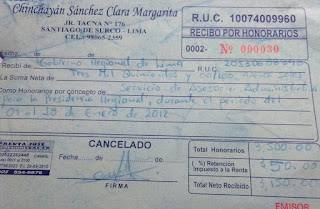 Chinchayán Sánchez Clara Margarita
JR. TACNA Nº 176
SANTIAGO DE SURCO - LIMA
CEL.: 98065-2359
R.U.C. 10074009960
RECIBO POR HONORARIOS
0002- Nº 000030
Recibí de Gobierno Regional de Lima R.U.C.
La Suma Neta de Tres Mil Quinientos y 00/100
por concepto de Servicio de Asesoria Administrativa
para la Presidencia Regional, durante el periodo del
01 al 29 de Enero de 2012
CANCELADO
Fecha de de
FIRMA
Total Honorarios 3,500.00
( %) Retención
Impuesto a la Renta
Total Neto Recibido
EMISOR